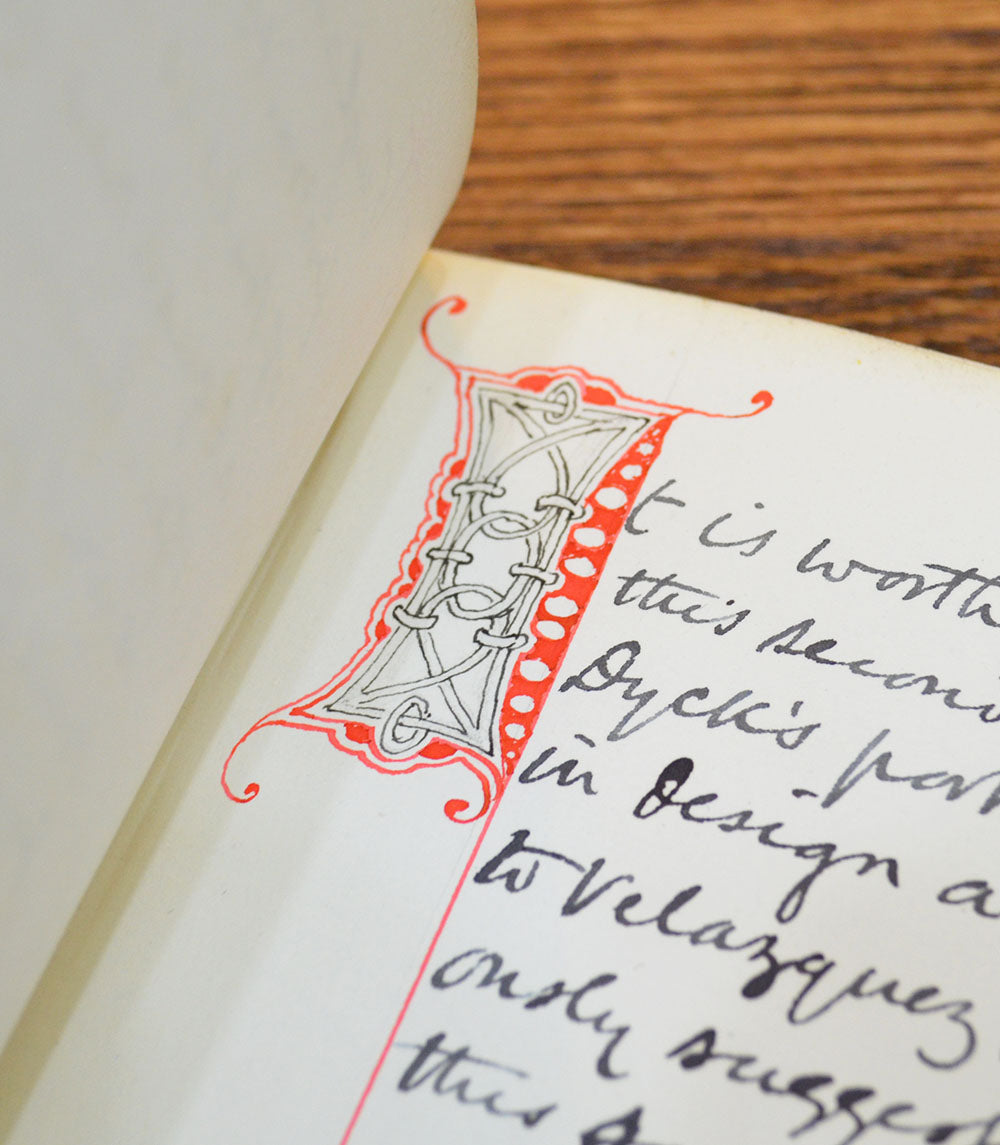 It is worth
this secon
Dyck's por
in Design a
to Velazquez
ously sugges
this